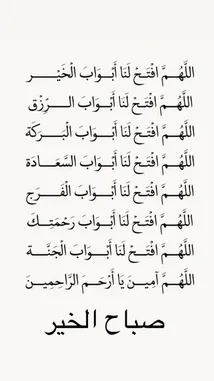 اللَّهُمَّ افْتَحْ لَنَا أَبْوَابَ الْخَيْـــر
اللَّهُمَّ افْتَحْ لَنَا أَبْوَابَ الـــرِّزْق
اللَّهُمَّ افْتَحْ لَنَا أَبْوَابَ الْبَـرَكَة
اللَّهُمَّ افْتَحْ لَنَا أَبْوَابَ السَّعَـادَة
اللَّهُمَّ افْتَحْ لَنَا أَبْوَابَ الْفَـــرَج
اللَّهُمَّ افْتَحْ لَنَا أَبْوَابَ رَحْمَتِـكَ
اللَّهُمَّ افْتَحْ لَنَا أَبْوَابَ الْجَنَّـــة
اللَّهُمَّ آمِينَ يَا أَرْحَمَ الرَّاحِمِيـنَ
صباح الخير